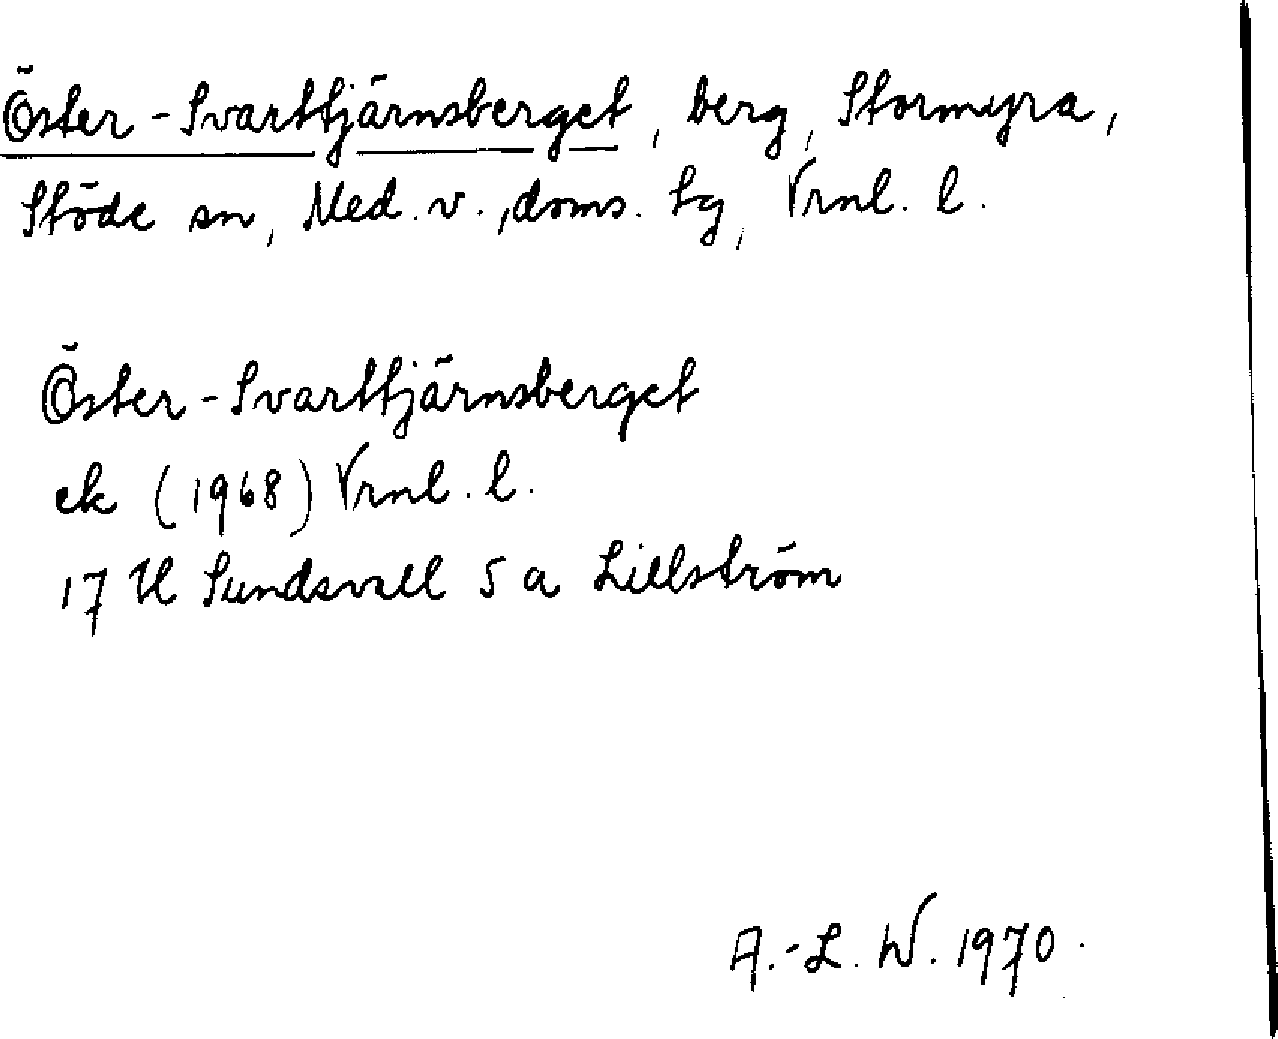 Öster-Svarttjärnsberget, berg, Stormyra,
Stöde sn, Med. v., doms. tg, Vrnl. l.
Öster-Svarttjärnsberget
ek (1968) Vrnl. l.
17 H Sundsvall 5 a Lillström
A.-L. W. 1970.